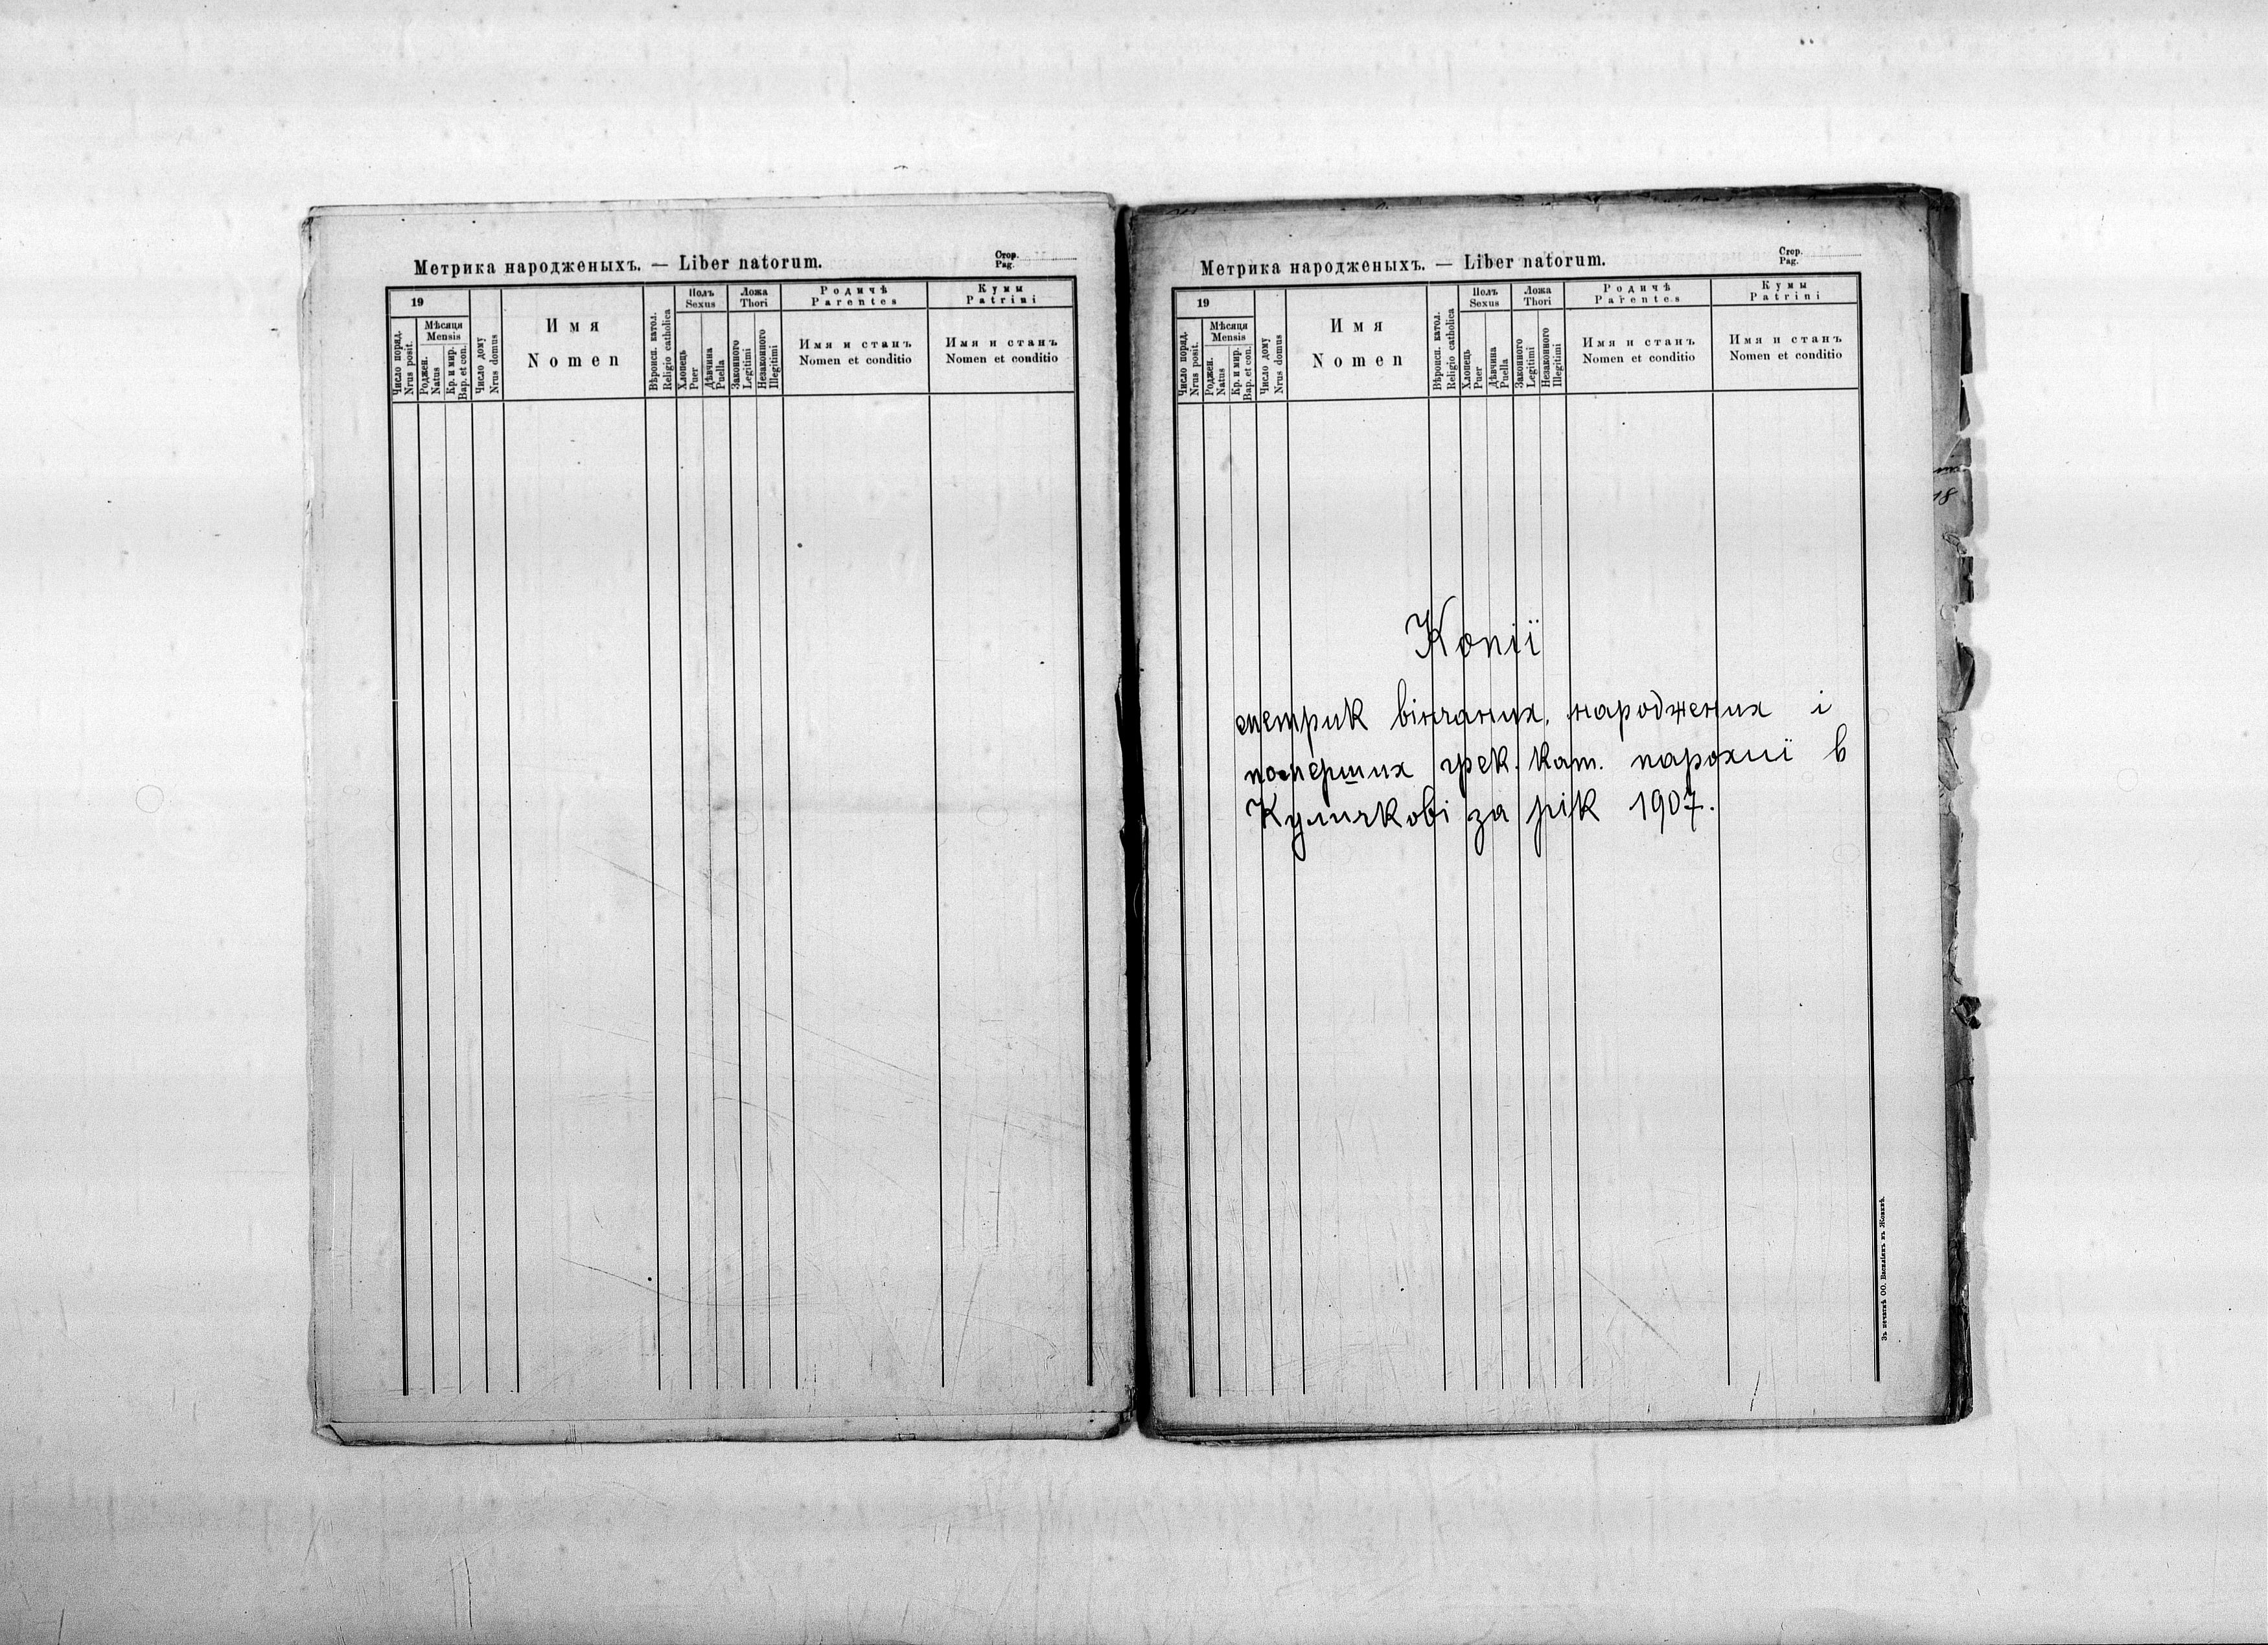 Метрика народженыхъ. — Liber natorum.
Стор.
Pag.
19
Число поряд.
Nrus posit.
Мѣсяця
Mensis
Роджен.
Natus
Кр. и мир.
Bap. et con.
Число дому
Nrus domus
Имя
Nomen
Вѣроисп. катол.
Religio catholica
Полъ
Sexus
Хлопець
Puer
Дѣвчина
Puella
Ложа
Thori
Законного
Legitimi
Незаконного
Illegitimi
Родичѣ
Parentes
Имя и станъ
Nomen et conditio
Кумы
Patrini
Имя и станъ
Nomen et conditio
Метрика народженыхъ. — Liber natorum.
Стор.
Pag.
19
Число поряд.
Nrus posit.
Мѣсяця
Mensis
Роджен.
Natus
Кр. и мир.
Bap. et con.
Число дому
Nrus domus
Имя
Nomen
Вѣроисп. катол.
Religio catholica
Полъ
Sexus
Хлопець
Puer
Дѣвчина
Puella
Ложа
Thori
Законного
Legitimi
Незаконного
Illegitimi
Родичѣ
Parentes
Имя и станъ
Nomen et conditio
Кумы
Patrini
Имя и станъ
Nomen et conditio
Копії
метрик вінчаних, народжених і
померших грек. кат. парохиї в
Куличкові за рік 1907.
Зъ печатнѣ ОО. Василіянъ въ Жовквѣ.
18